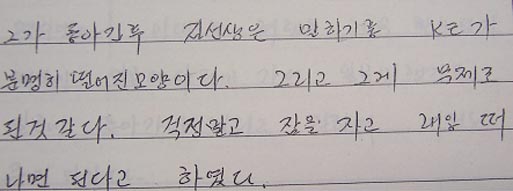 그가 돌아간후 김선생은 말하기를 KE가
분명히 떨어진모양이다. 그리고 그게 문제로
된것 같다. 걱정말고 잠을 자고 래일 떠
나면 된다고 하였다.